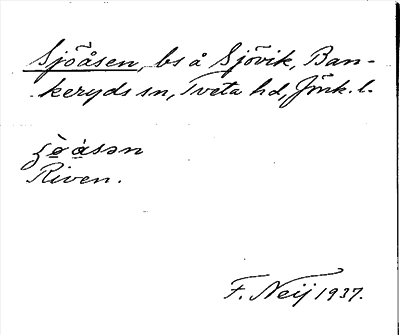 Sjöåsen, bs å Sjövik, Ban-
keryds sn, Tveta hd, Jönk. l.
Riven.
F. Neij 1937.